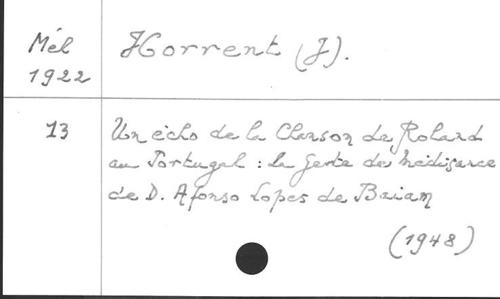 Mél
1922
Horrent (J).
13
Un écho de la Chanson de Roland
au Portugal : la geste de médisance
de D. Afonso Lopes de Baiam
(1948)